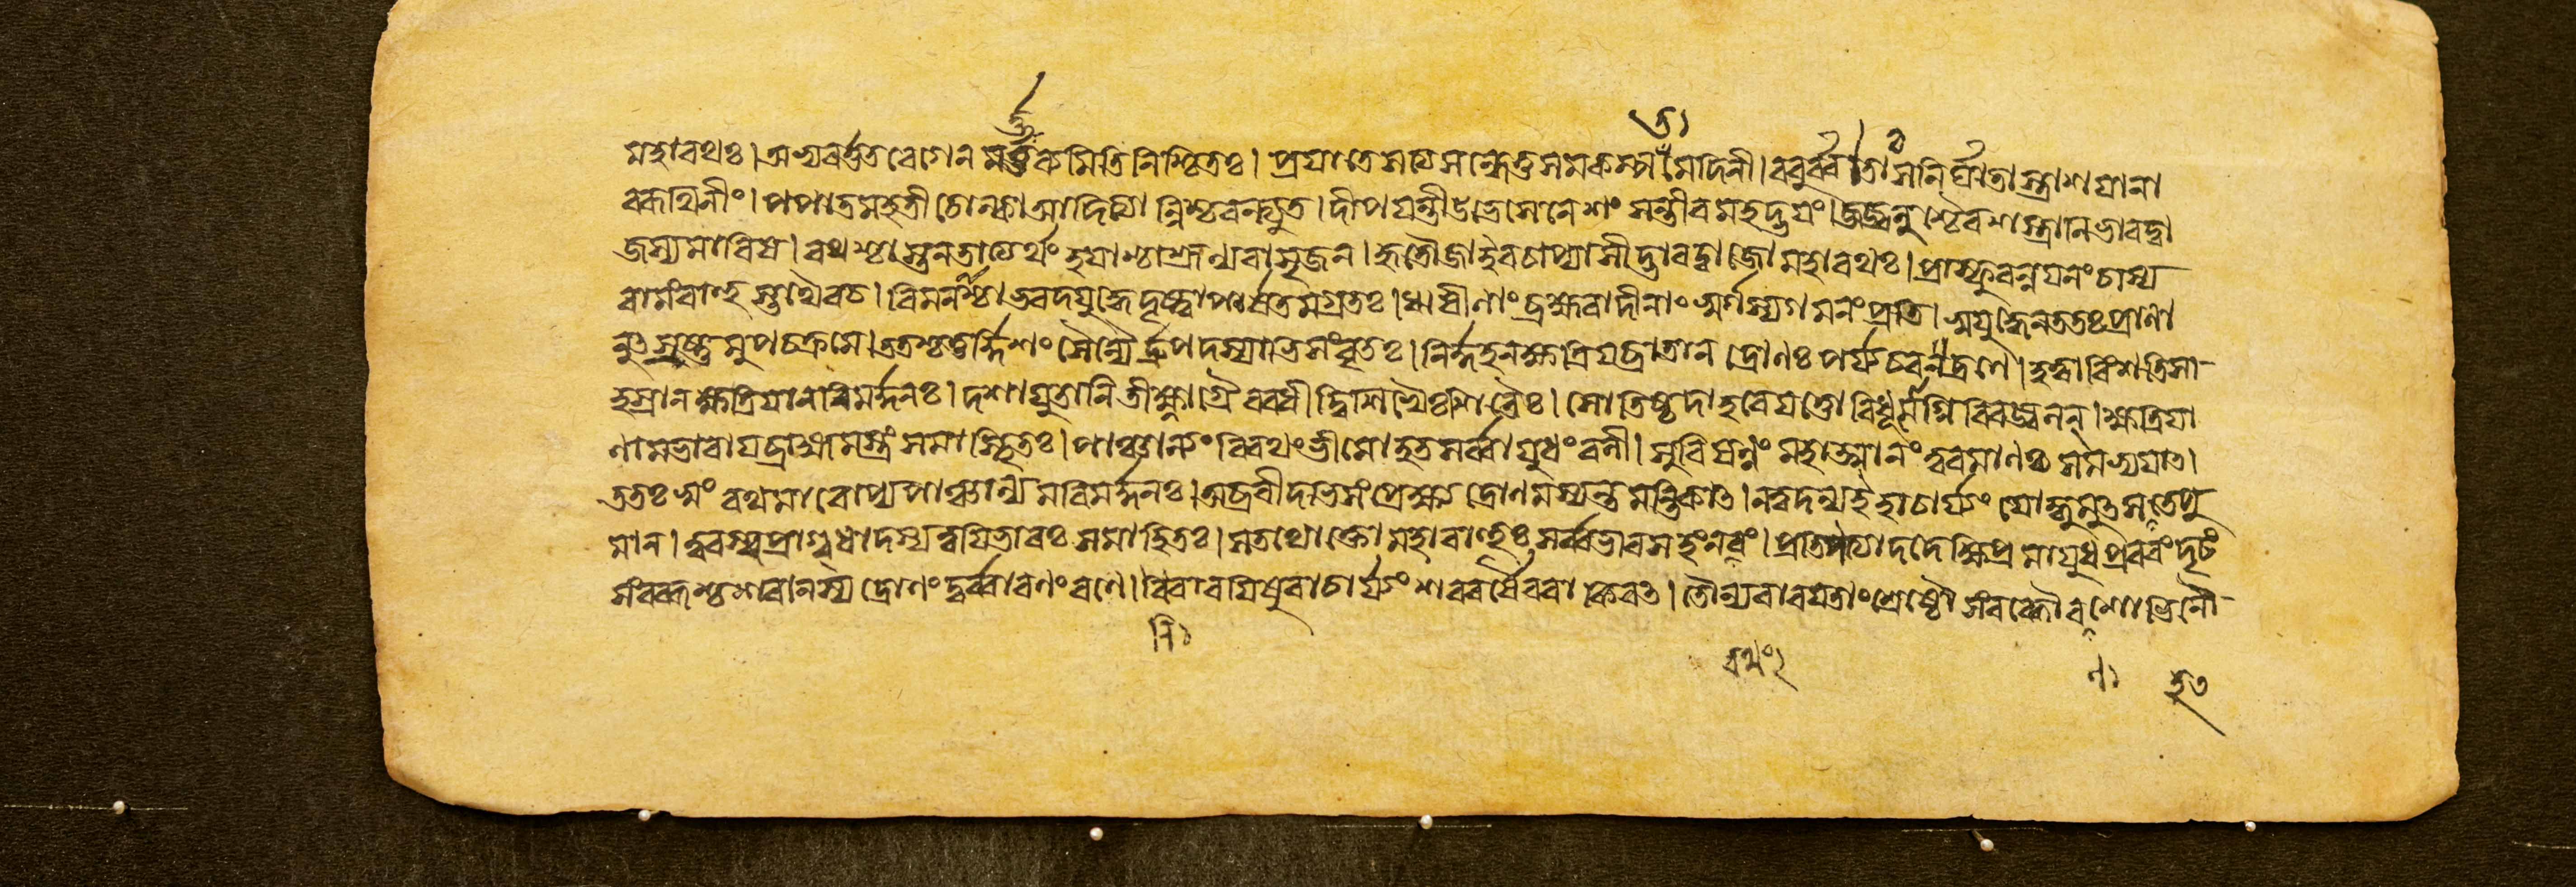 মহারথঃ।অভ্যবর্ত্ততবেগেনমর্ত্তব্যমিতিনিশ্চিতঃ। প্রযাতেসত্যসন্ধেতুসমকম্পতমেদিনী।ববুর্ব্বাতাঃসনির্ঘাতাস্ত্রাশযানা
বরূথিনীং।পপাতমহতীচোল্কাআদিত্যান্নিশ্চরন্ত্যুত।দীপযন্তীউভেসেনেশংসন্তীবমহদ্ভযং।জজ্বলুশ্চৈবশস্ত্রানিভারদ্বা
জস্যমারিষ।রথাশ্চাস্বনতাত্যর্থংহযাশ্চাশ্রূন্যবাসৃজন।হতৌজাইবচাপ্যাসীদ্ভারদ্বাজোমহারথঃ।প্রাস্ফুরন্নযনংচাস্য
বামংবাহুস্তথৈবচ।বিমনাশ্চাভবদযুদ্ধেদৃষ্ট্বাপার্ষতমগ্রতঃ।ঋষীণাংব্রহ্মবাদীনাংস্বর্গস্যগমনংপ্রতি।সুযুদ্ধেনততঃপ্রাণা
নুৎস্রষ্টুমুপচক্রমে।ততশ্চতুর্দ্দিশংসৈন্যৈর্দ্রুপদস্যাভিসংবৃতঃ।নির্দ্দহনক্ষত্রিযব্রাতান দ্রোণঃপর্য্যচরদ্রণে।হত্বাবিংশতিসা
হস্রানক্ষত্রিযানরিমর্দ্দনঃ।দশাযুতানিতীক্ষ্ণাগ্রৈরবধীদ্বিশিখৈঃশিতৈঃ।সোতিষ্ঠদাহবেযত্তোবিধূমোগ্নিরিবজ্বলন্।ক্ষত্রিযা
ণামভাবাযব্রাহ্মমস্ত্রংসমাস্থিতঃ।পাঞ্চাল্যংবিরথংভীমোহতসর্ব্বাযুধংবলী।সুবিষন্নংমহাত্মানংত্বরমাণঃসমভ্যযাত।
ততঃস্বংরথমারোপ্যপাঞ্চাল্যমরিমর্দ্দনঃ।অব্রবীদভিসংপ্রেক্ষ্যদ্রোণমস্যন্তমন্তিকাৎ।নত্বদন্যইহাচার্য্যংযোদ্ধুমুৎসহতেপু
মান।ত্বরস্বপ্রাগ্বধাদস্যত্বযিভারঃসমাহিতঃ।সতথোক্তোমহাবাহুঃসর্ব্বভারসহংনবং।প্রতিপত্যাদদেক্ষিপ্রমাযুধপ্রবরংদৃঢং
সংরব্ধশ্চশরানস্যদ্রোণংদুর্ব্বারণংরণে।বিবারযিষুরাচার্য্যংশরবর্ষৈরবাকিরৎ।তৌন্যবারযেতাংশ্রেষ্ঠৌসংরব্ধৌরণশোভিনৌ